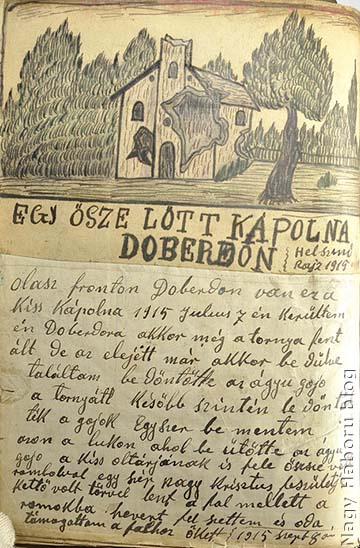 EGY ŐSZE LŐTT KÁPOLNA
DOBERDÓN
Helszini
Rajz 1915
olasz fronton Doberdon van ez a
Kiss Kápolna 1915 Julius 7 én Kerültem
én Doberdora akkor még a tornya fent
ált de az elejétt már akkor be dülve
találtam be döntötte az ágyu gojo
a tornyátt Később szintén le dön
tik a gojok Egyszer be mentem
azon a lukon ahol be ütötte az ágyu
gojo a kiss oltárjának is fele össze
rombolva egy szer nagy Krisztus feszület
kettő volt törvel lent a fal mellett a
romokba hevert fel szettem és oda
támogattam a falhoz 1915 szept
Nagy Háború Blog